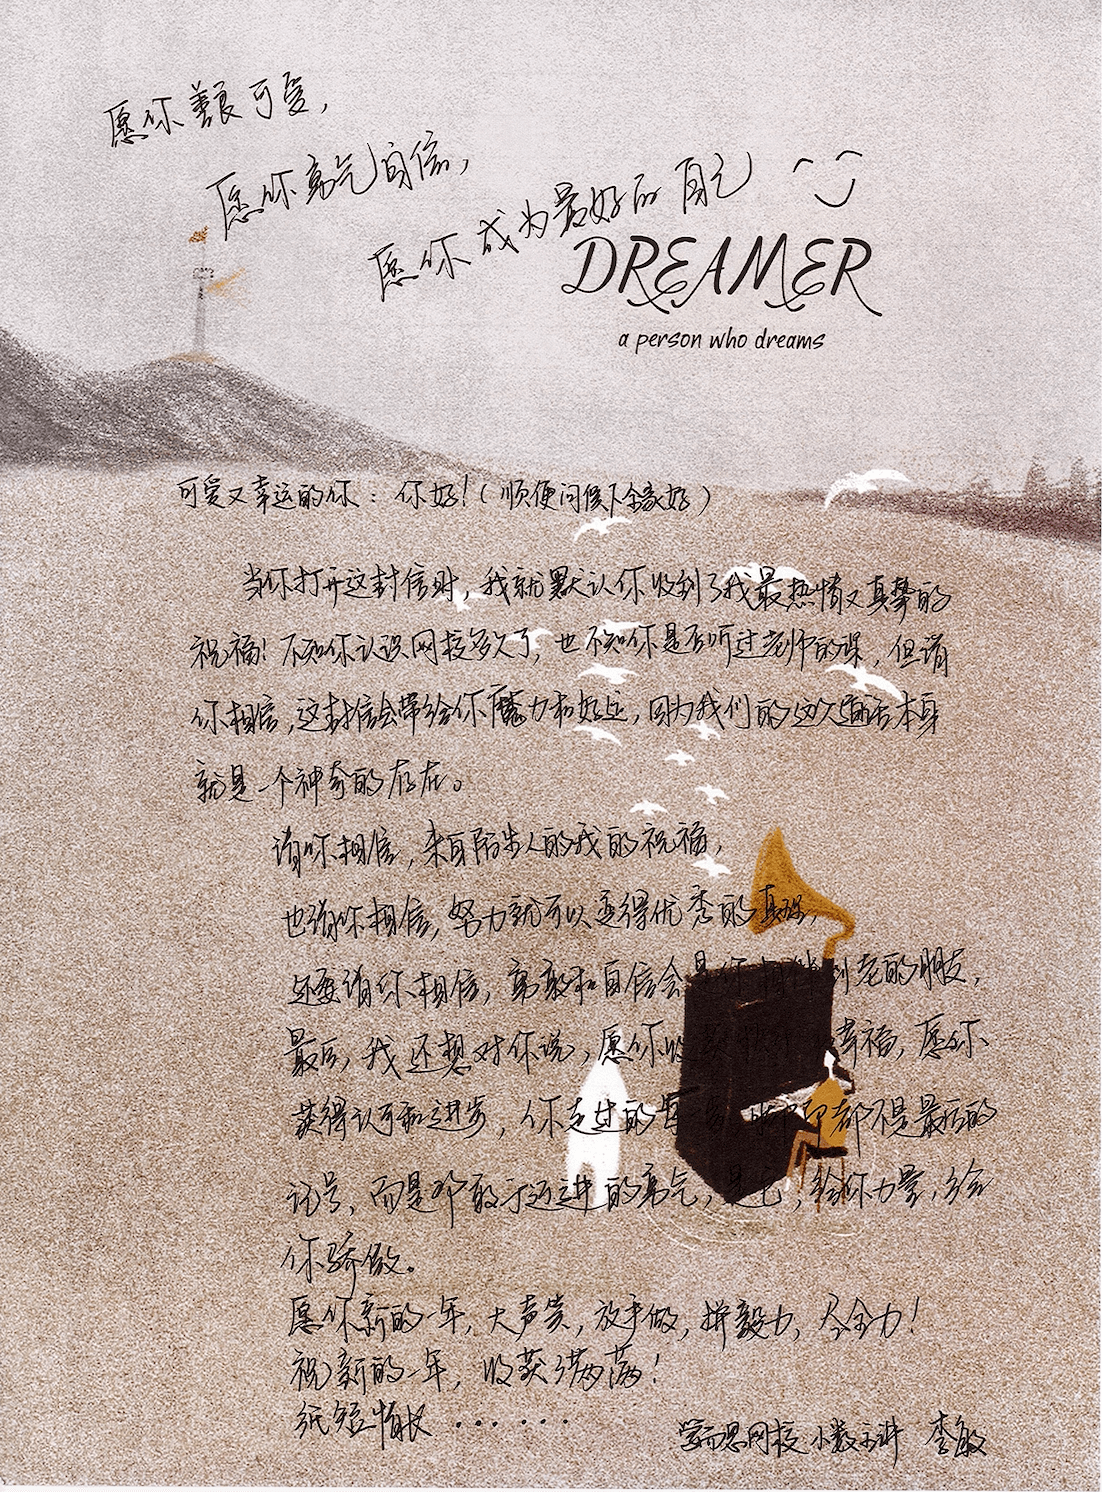 愿你善良可爱，
愿你勇气自信，
愿你成为最好的自己
DREAMER
a person who dreams
可爱又幸运的你：你好！（顺便问候下全家好）
当你打开这封信时，我就默认你收到了我最热情又真挚的
祝福！不知你认识网校多久了，也不知你是否听过老师的课，但请
你相信，这封信会带给你魔力和好运，因为我们的这次通话本身
就是一个神奇的存在。
请你相信，来自陌生人的我的祝福，
也请你相信，努力就可以变得优秀的真理，
还要请你相信，勇敢和自信会是你相伴到老的朋友，
最后，我还想对你说，愿你收获 幸福，愿你
获得认可和进步，你走过的 都不是最后的
记号，而是那敢于迈进的勇气，是它，给你力量，给
你骄傲。
愿你新的一年，大声笑，放手做，拼毅力，尽全力！
祝新的一年，收获满满！
纸短情长……
学而思网校 小数主讲 李敏